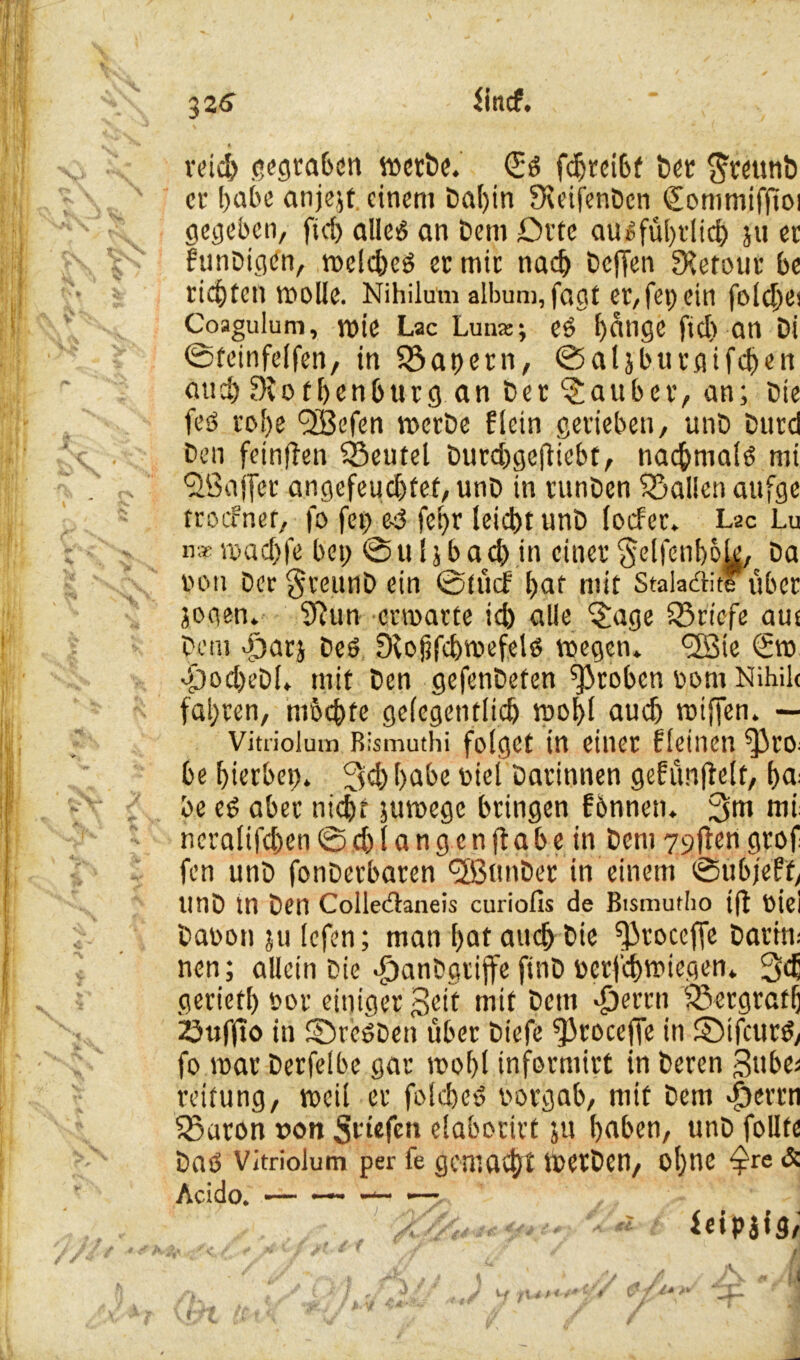 326 Linck.
reich gegraben werde. Es schreibt der Freund
er habe anjezt einem dahin Reisenden Commissioi
gegeben, sich alles an dem Orte ausführlich zu er
kundigen, welches er mir nach dessen Retour be
richten wolle. Nihilum album, sagt er, sey ein solches
Coagulum, wie Lac Lunæ; es hänge sich an di
Steinfelsen, in Bayern, Salzburgischen
auch Rothenburg an der Tauber, an; die
ses rohe Wesen werde klein gerieben, und durch
den feinsten Beutel durchgestiebt, nachmals mi
Wasser angefeuchtet, und in runden Ballen aufge
trocknet, so sey es sehr leicht und locker. Lac Lu
næ wachse bey Sulzbach in einer Felsenhöle, da
von der Freund ein Stück hat mit Stalactite über
zogen. Nun erwarte ich alle Tage Briefe aus
dem Harz des Roßschwefels wegen. Wie Ew
Hochedl. mit den gesendeten Proben vom Nihilo
fahren, möchte gelegentlich wohl auch wissen. —
Vitriolum Bismuthi folget in einer kleinen Pro-
be hierbey. Ich habe viel darinnen gekünstelt, ha-
be es aber nicht zuwege bringen können. Im mi-
neralischen Schlangenstabe in dem 79sten gros-
sen und sonderbaren Wunder in einem Subjekt,
und in den Collectaneis curiosis de Bismutho ist viel
davon zu lesen; man hat auch die Processe darin-
nen; allein die Handgriffe sind verschwiegen. Ich
gerieth vor einiger Zeit mit dem Herrn Bergrath
Bussio in Dresden über diese Processe in Discurs,
so war derselbe gar wohl informirt in deren Zube-
reitung, weil er solches vorgab, mit dem Herrn
Baron von Friesen elaborirt zu haben, und sollte
das Vitriolum per se gemacht werden, ohne ☿re &
Acido. — — — —
Leipzig,